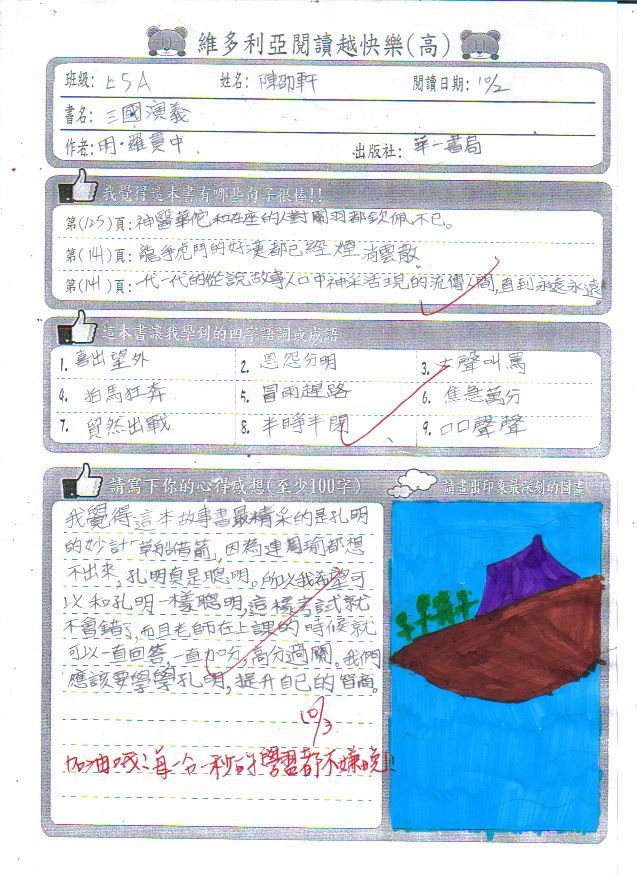 維多利亞閱讀越快樂(高)
班級: E5A 姓名: 陳劭軒 閱讀日期: 10/2
書名: 三國演義
作者: 明·羅貫中 出版社: 華一書局
我覺得這本書有哪些句子很棒!!
第(125)頁: 神醫華佗和在座的人對關羽都欽佩不已。
第(141)頁: 龍爭虎鬥的好漢都已經煙消雲散
第(141)頁: 一代一代的從說故事人口中神采活現的流傳人間,直到永遠永遠。
這本書讓我學到的四字語詞或成語
1. 喜出望外 2. 恩怨分明 3. 大聲叫罵
4. 拍馬狂奔 5. 冒雨趕路 6. 焦急萬分
7. 貿然出戰 8. 半睜半閉 9. 口口聲聲
請寫下你的心得感想(至少100字)
請畫出印象最深刻的圖畫
我覺得這本故事書最精采的是孔明
的妙計「草船借箭」,因為連周瑜都想
不出來,孔明真是聰明。所以我希望可
以和孔明一樣聰明,這樣考試就
不會錯了,而且老師在上課的時候就
可以一直回答,一直加分,高分過關。我們
應該要學學孔明,提升自己的智商。
10/3
加油哦!每一分一秒的學習都不嫌晚!